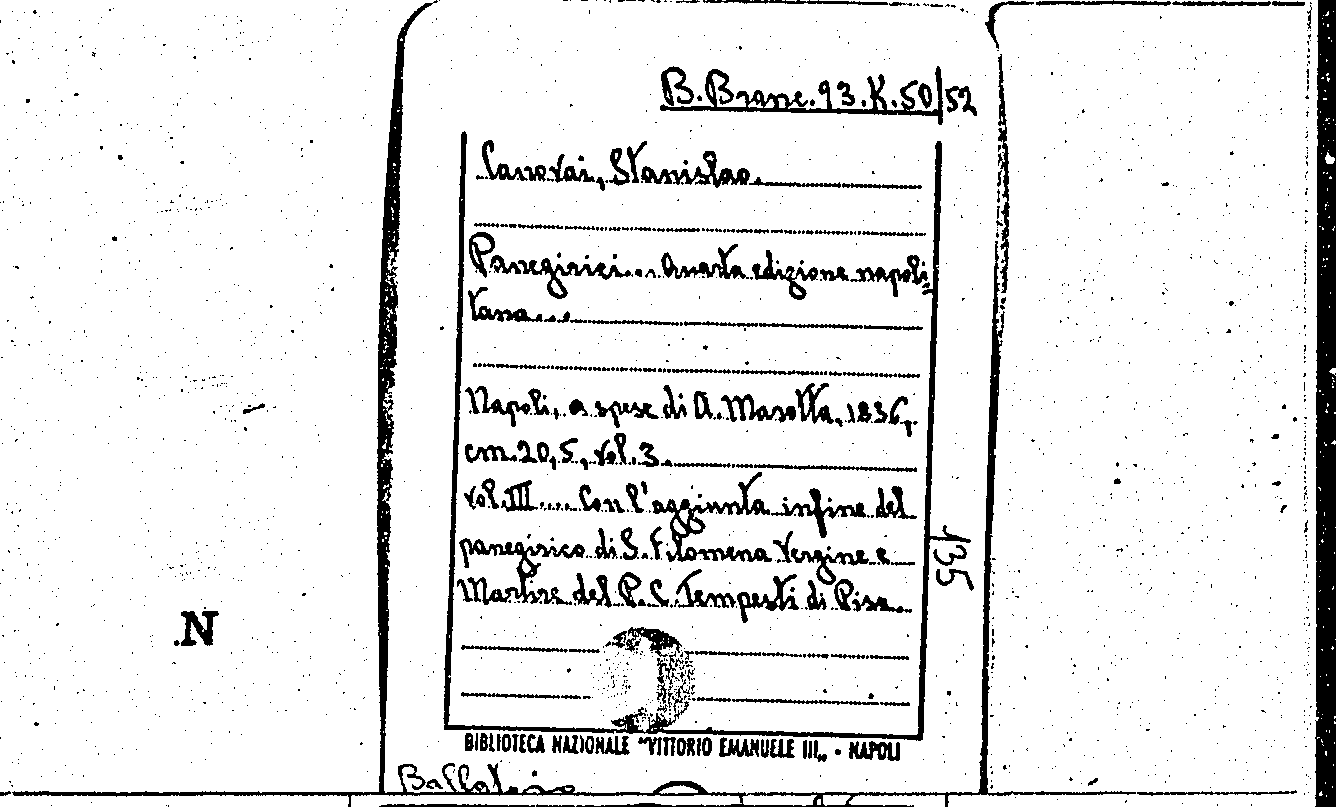 B. Branc. 93. K. 50/52
Canovai, Stanislao.
Panegirici... Quarta edizione napoli=
tana...
Napoli, a spese di A. Masotta, 1836,
cm. 20,5, vol. 3.
vol. III.... Con l'aggiunta infine del
panegirico di S. Filomena Vergine e
Martire del P. C. Tempesti di Pisa.
135
N
BIBLIOTECA NAZIONALE "VITTORIO EMANUELE III„ - NAPOLI